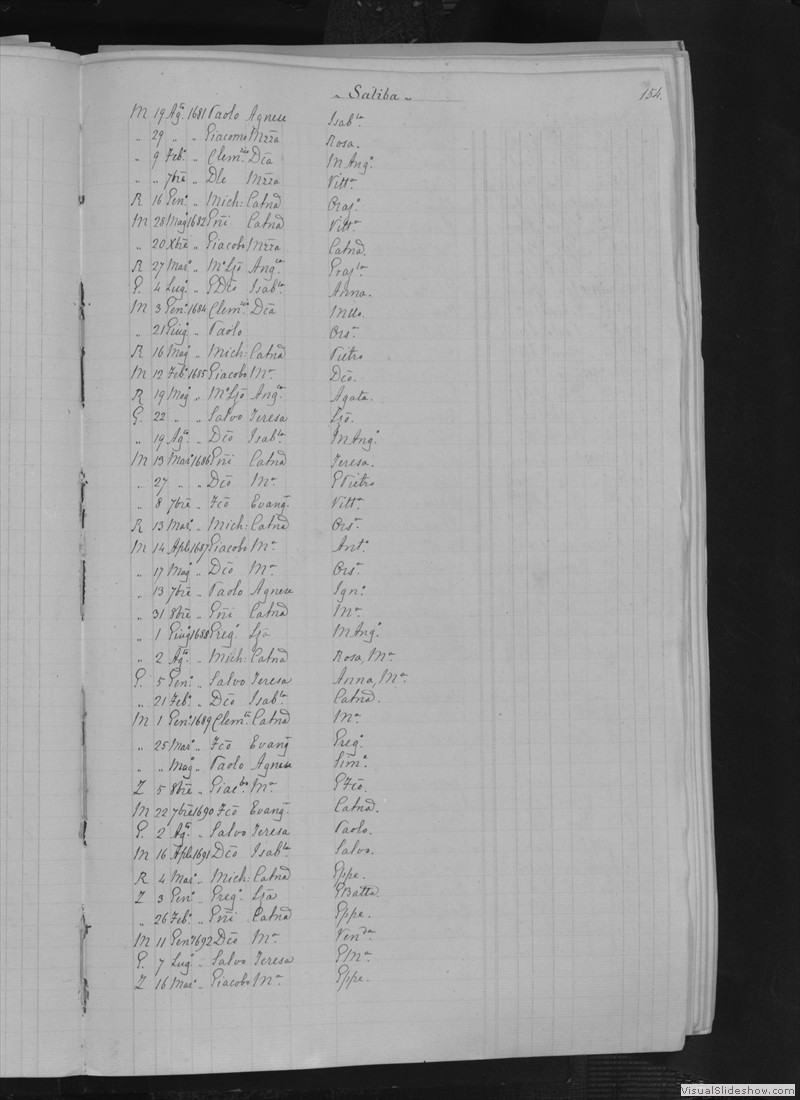 Saliba
154.
M 19 Ag.to 1681 Paolo Agnese Isab.la
" 29 " " Giacomo Mzza Rosa.
" 9 Feb.o " Clem.zio Dca M Ang.a
" " 7bre " Dle Mzza Vitt.a
R 16 Gen.o " Mich: Catnd Oraz.o
M 28 Mag 1682 Gni Catnd Vitt.a
" 20 Xbre " Giacobo Mzza Catnd.
R 27 Mar.o " M.o Ljo Ang.ca Graz.la
G. 4 Lug.o " GDco Isab.la Anna.
M 3 Gen.o 1684 Clem.zio Dca Mllo.
" 21 Giug. " Paolo Ors.a
R 16 Mag " Mich: Catnd Pietro
M 12 Feb.o 1685 Giacobo M.a Dco.
R 19 Mag " M.o Ljo Ang.ca Agata.
G. 22 " " Salvo Teresa Ljo.
" 19 Ag.to " Dco Isab.la M Ang.o
M 13 Mar.o 1686 Gni Catnd Teresa.
" 27 " " Dco M.a G Pietro
" 8 7bre " Fco Evang. Vitt.a
R 13 Mar.o " Mich: Catnd Ors.a
M 14 Aple 1687 Giacobo M.a Ant.o
" 17 Mag " Dco M.a Ors.a
" 13 7bre " Paolo Agnese Ign.o
" 31 8bre " Gni Catnd M.a
" 1 Giug 1688 Greg.o Ljo M Ang.o
" 2 Ag.to " Mich: Catnd Rosa, M.a
G. 5 Gen.o " Salvo Teresa Anna, M.a
" 21 Feb.o " Dco Isab.la Catnd.
M 1 Gen.o 1689 Clem.te Catnd M.a
" 25 Mar.o " Fco Evang Greg.o
" " Mag.o " Paolo Agnese Sim.o
Z 5 8bre " Giac.bo M.a G Fco.
M 22 7bre 1690 Fco Evang. Catnd.
G. 2 Ag.to " Salvo Teresa Paolo.
M 16 Aple 1691 Dco Isab.la Salvo.
R 4 Mar.o " Mich: Catnd Gppe.
Z 3 Gen.o " Greg.o Lja GBatta.
" 26 Feb.o " Gni Catnd Gppe.
M 11 Gen.o 1692 Dco M.a Ven.da
G. 7 Lug.o " Salvo Teresa G M.a
Z 16 Mar.o " Giacobo M.a Gppe.
VisualSlideshow.com